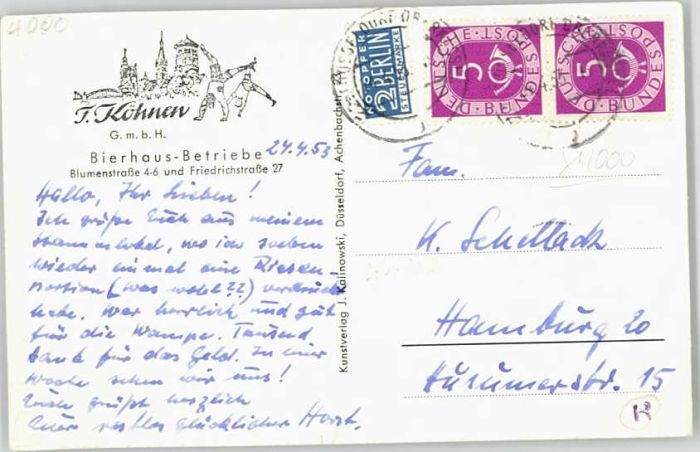 4000
T. Köhnen
G.m.b.H.
Bierhaus-Betriebe
Blumenstraße 4-6 und Friedrichstraße 27
24.4.53
Hallo, Ihr Lieben!
Ich grüße Euch aus meinem
Stammlokal, wo ich soeben
wieder einmal eine Riesen-
portion (was wohl??) verdrückt
habe. War herrlich und gut
für die Wampe. Tausend
Dank für das Geld. In einer
Woche sehen wir uns!
Euch grüßt herzlich
Euer restlos glücklicher Horst.
Kunstverlag J. Kalinowski, Düsseldorf, Achenbachstr.
NOTOPFER
2 BERLIN
STEUERMARKE
DEUTSCHE BUNDESPOST
5
DEUTSCHE BUNDESPOST
5
4000
Fam.
K. Schettlack
Hamburg 20
Husumerstr. 15